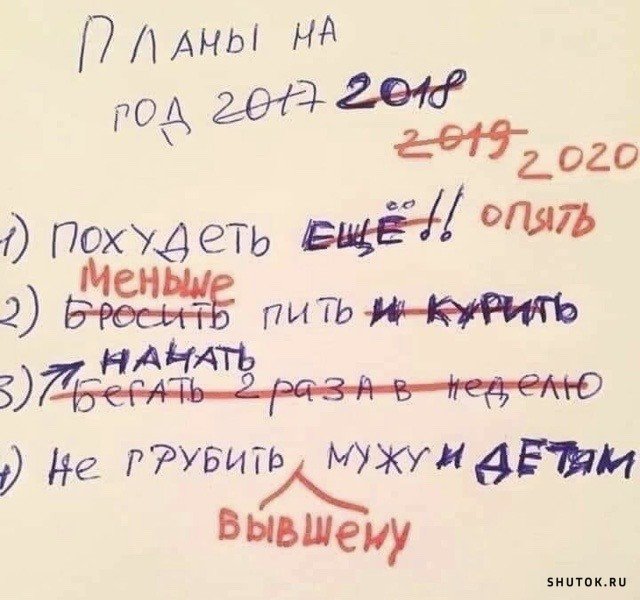 Планы на
год 2017 2018
2019 2020
1) Похудеть ЕЩЁ!! опять
Меньше
2) Бросить пить и курить
НАЧАТЬ
3) Бегать 2 раза в неделю
4) Не грубить мужу и ДЕТЯМ
бывшему
SHUTOK.RU